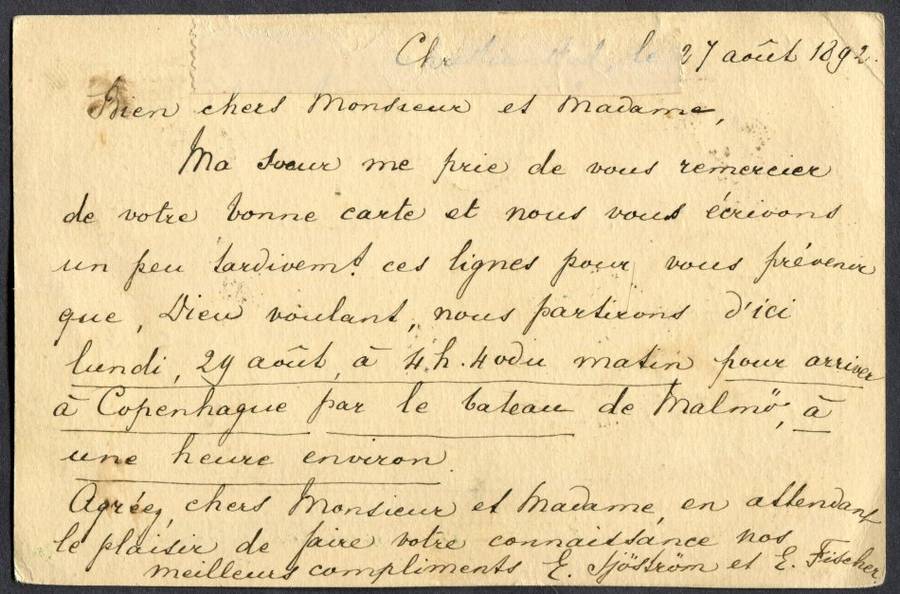 Ch le 27 août 1892.
Bien chers Monsieur et Madame,
Ma sœur me prie de vous remercier
de votre bonne carte et nous vous écrivons
un peu tardivemt. ces lignes pour vous prévenir
que, Dieu voulant, nous partirons d'ici
lundi, 29 août, à 4 h. 40 du matin pour arriver
à Copenhague par le bateau de Malmö, à
une heure environ.
Agréez, chers Monsieur et Madame, en attendant
le plaisir de faire votre connaissance nos
meilleurs compliments E. Sjöström et E. Fischer